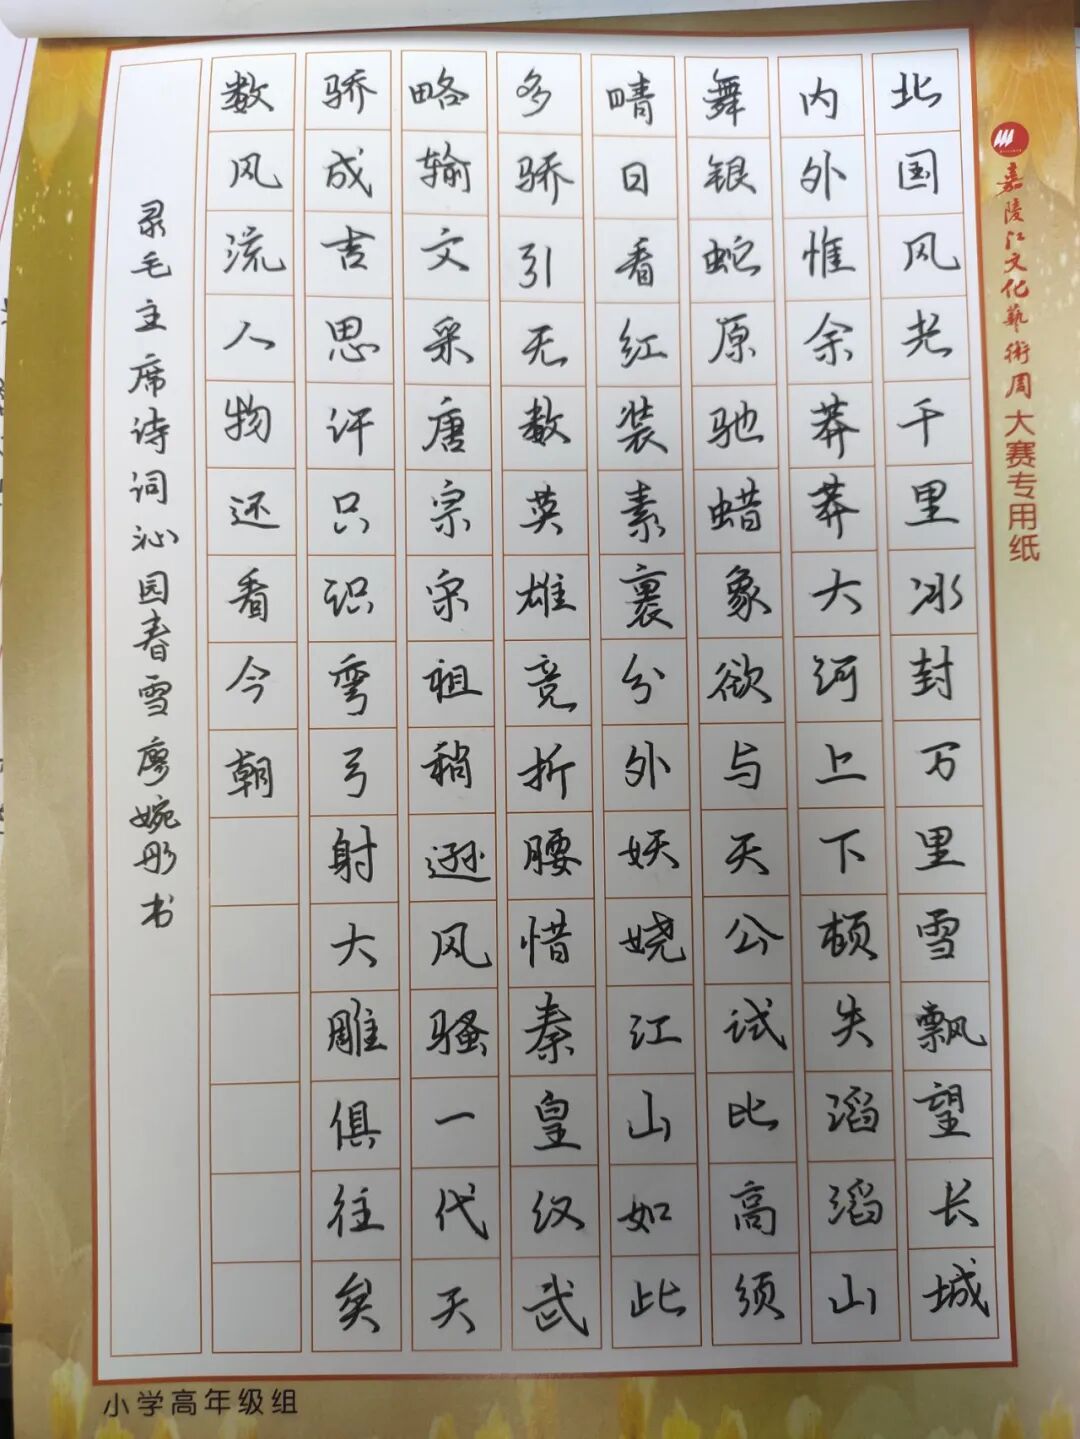 嘉陵江文化艺術周大赛专用纸
北国风光千里冰封万里雪飘望长城
内外惟余莽莽大河上下顿失滔滔山
舞银蛇原驰蜡象欲与天公试比高须
晴日看红装素裹分外妖娆江山如此
多骄引无数英雄竞折腰惜秦皇汉武
略输文采唐宗宋祖稍逊风骚一代天
骄成吉思汗只识弯弓射大雕俱往矣
数风流人物还看今朝
录毛主席诗词沁园春雪廖婉彤书
小学高年级组